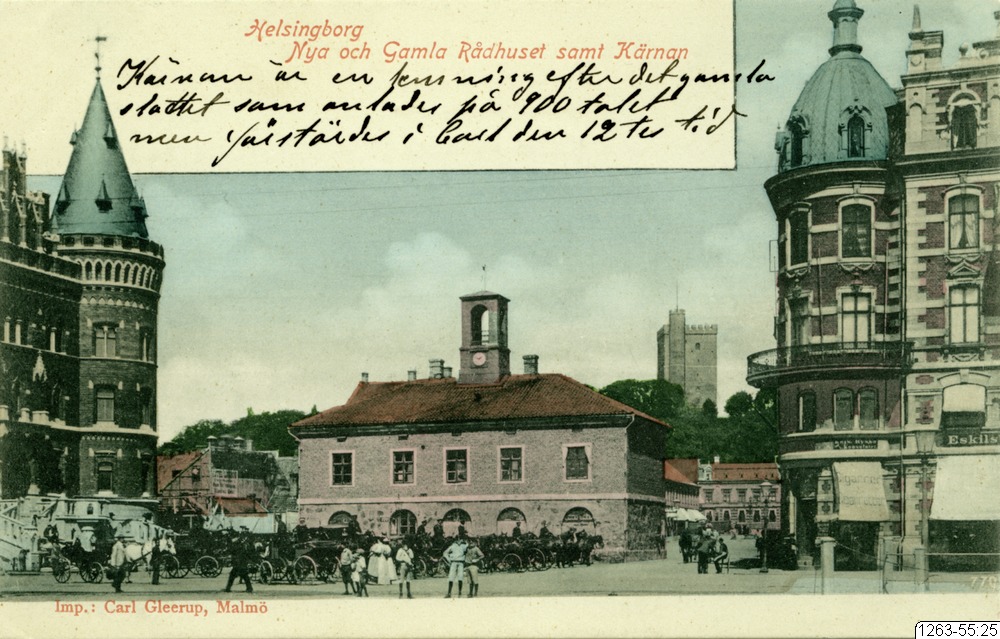 Helsingborg
Nya och Gamla Rådhuset samt Kärnan
Kärnan är en lemning efter det gamla
slottet som anlades på 900 talet
men förstördes i Carl den 12tes tid
Eskils
770
Imp.: Carl Gleerup, Malmö
1263-55:25